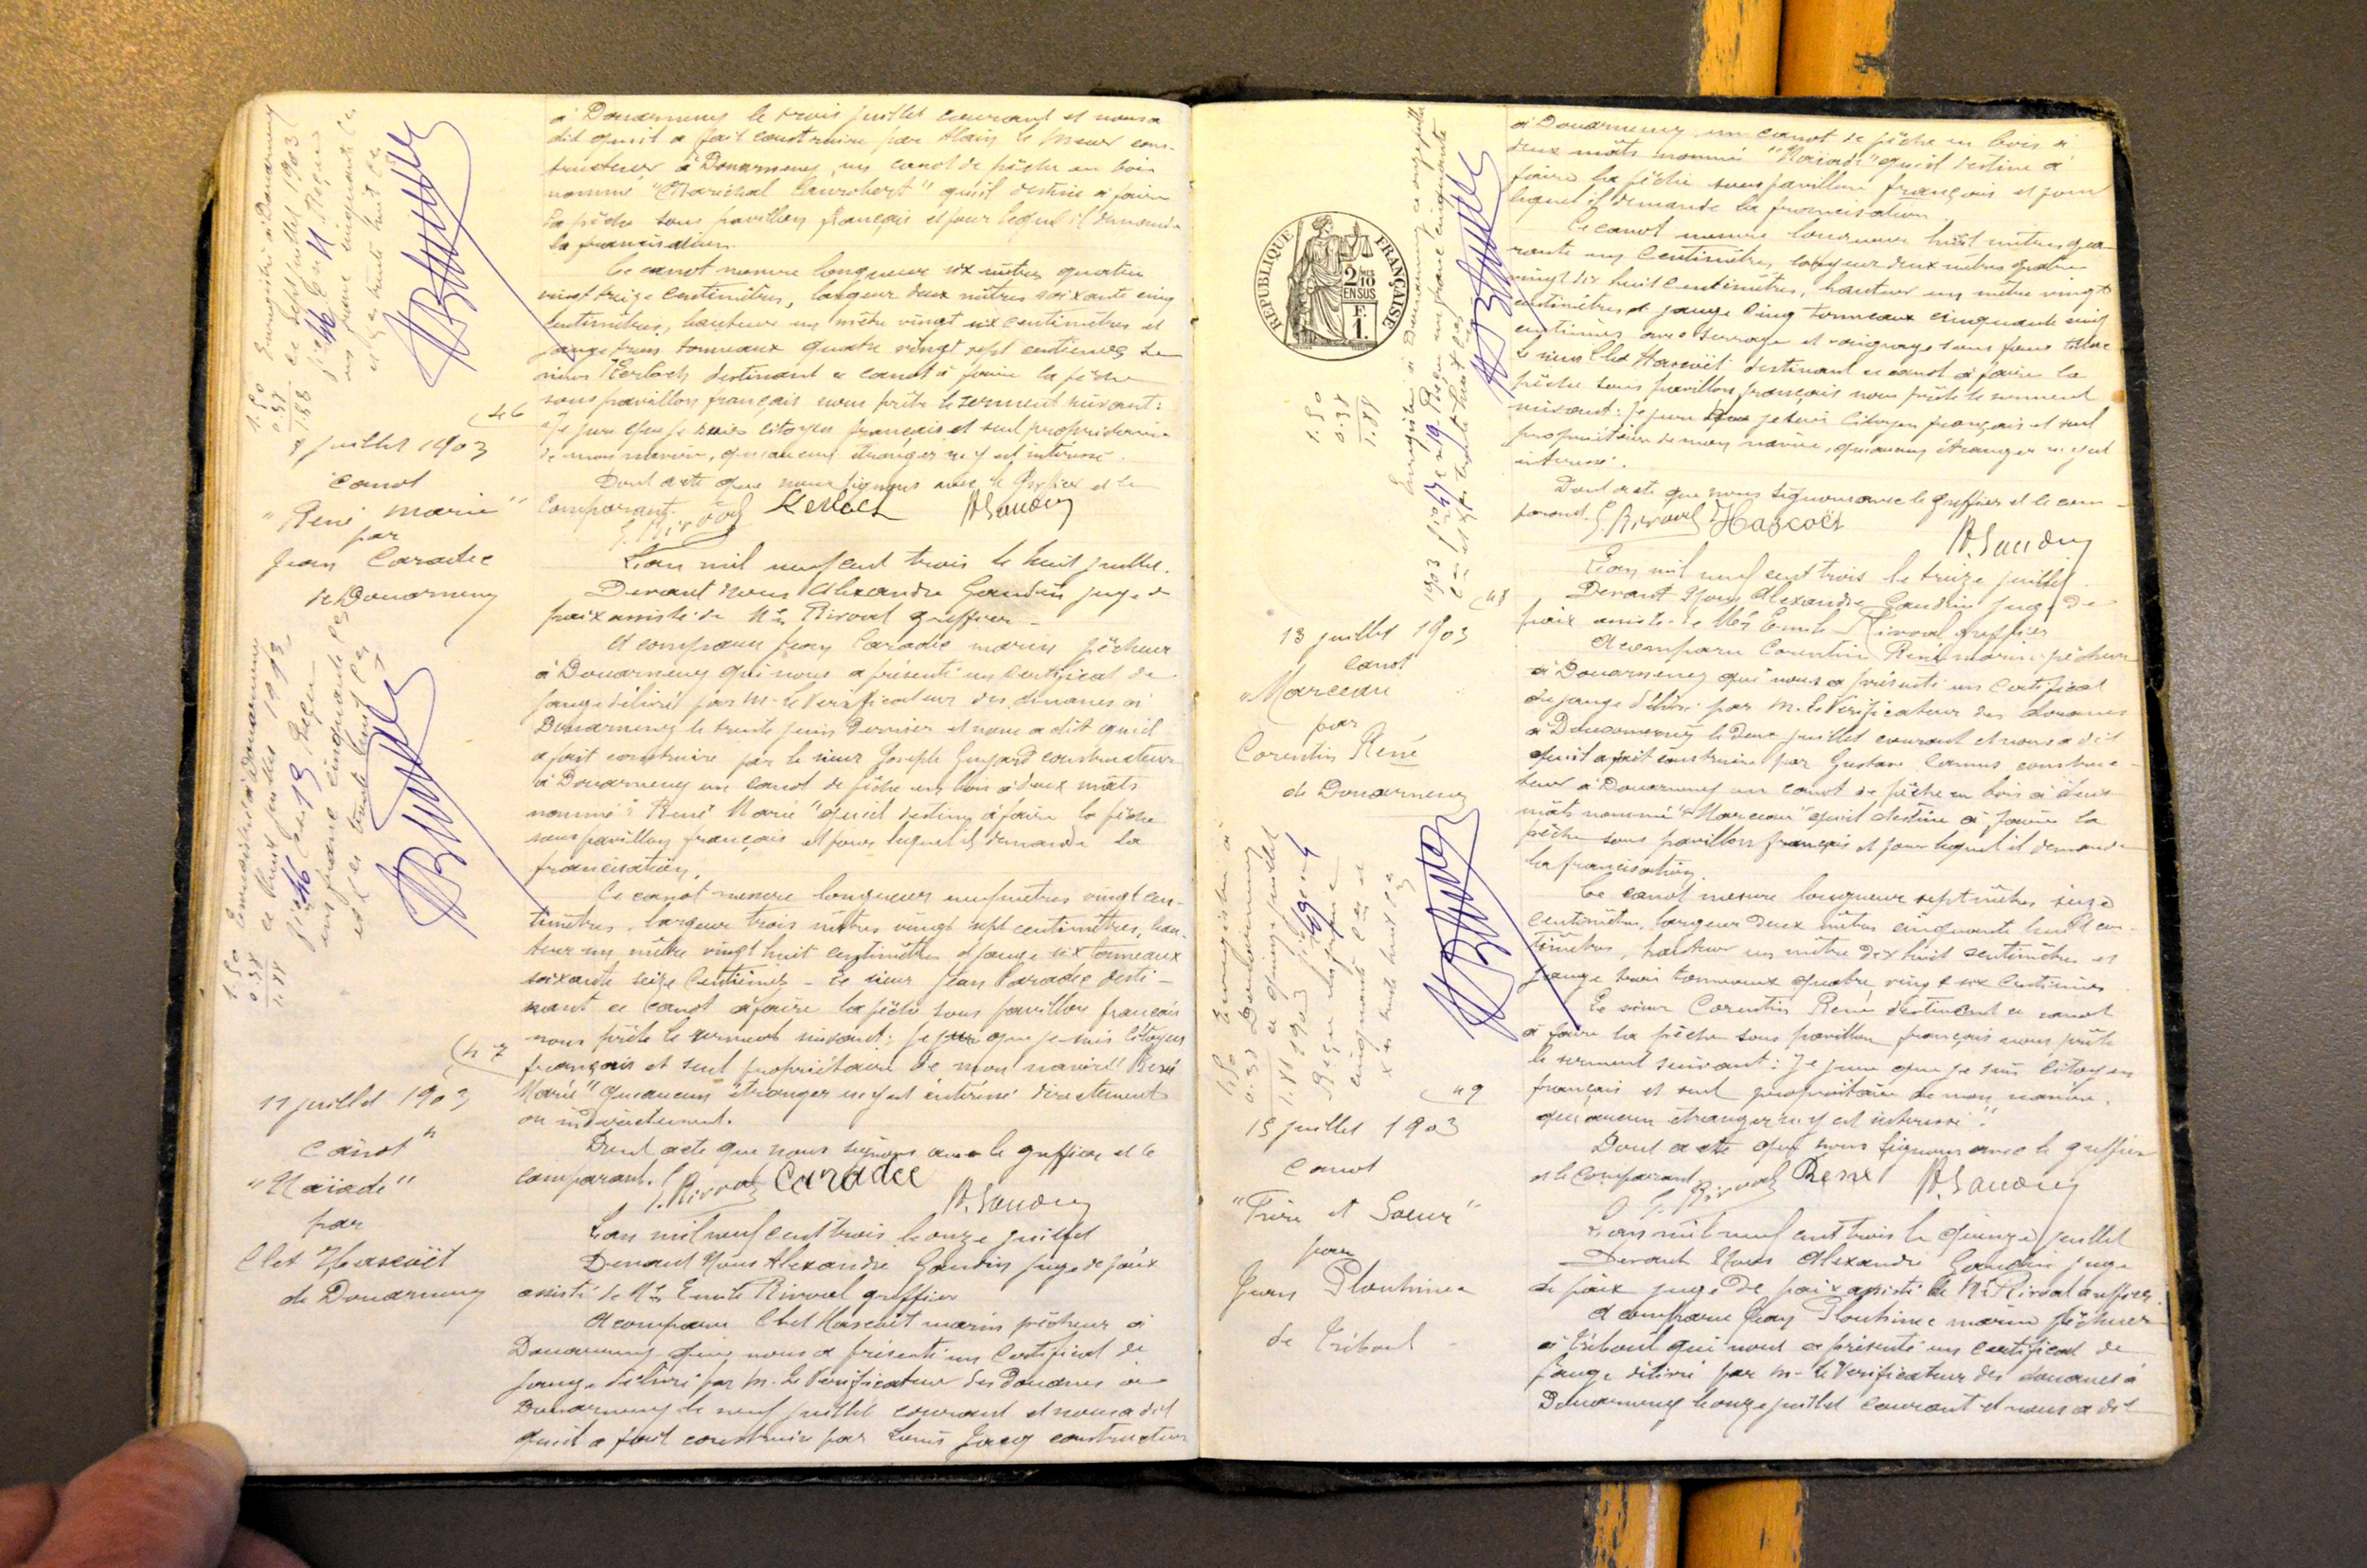 à Douarnenez le trois juillet courant et nous a
dit qu'il a fait construire par Alain Le Meur cons-
tructeur à Douarnenez, un canot de pêche en bois
nommé "Maréchal Canrobert" qu'il destine à faire
la pêche sous pavillon français et pour lequel il demande
la francisation.
Ce canot mesure longueur six mètres quatre
vingt treize centimètres, largeur deux mètres soixante cinq
centimètres, hauteur un mètre vingt six centimètres et
jauge trois tonneaux quatre vingt sept centièmes Le
sieur Kerloch destinant ce canot à faire la pêche
sous pavillon français nous prête le serment suivant:
"Je jure que je suis citoyen français et seul propriétaire
de mon navire, qu'aucun étranger n'y est intéressé.
Dont acte que nous signons avec le Greffier et le
comparant.
E. Rivoal Kerloch A. Gaudin
Enregistré à Douarnenez
ce sept juillet 1903
Reçu
un franc cinquante ces
et xes trente huit ces
1.50
0.38
1.88
46
8 juillet 1903
Canot
"René Marie"
par
Jean Caradec
de Douarnenez
L'an mil neuf cent trois le huit juillet.
Devant nous Alexandre Gaudin juge de
paix assisté de Me Rivoal greffier -
A comparu Jean Caradec marin pêcheur
à Douarnenez qui nous a présenté un certificat de
jauge délivré par M. le Vérificateur des douanes à
Douarnenez le trente juin dernier et nous a dit qu'il
a fait construire par le sieur Joseph Guyard constructeur
à Douarnenez un canot de pêche en bois à deux mâts
nommé "René Marie" qu'il destine à faire la pêche
sous pavillon français et pour lequel il demande la
francisation,
Ce canot mesure longueur neuf mètres vingt cen-
timètres, largeur trois mètres vingt sept centimètres, hau-
teur un mètre vingt huit centimètres et jauge six tonneaux
soixante seize centièmes - Le sieur Jean Caradec desti-
nant ce canot à faire la pêche sous pavillon français
nous prête le serment suivant: Je jure que je suis citoyen
français et seul propriétaire de mon navire "René
Marie" qu'aucun étranger n'y est intéressé directement
ou indirectement.
Dont acte que nous signons avec le greffier et le
comparant.
E. Rivoal Caradec A. Gaudin
Enregistré à Douarnenez
ce juillet 1903
Reçu
un franc cinquante ces
et xes trente huit ces
1.50
0.38
1.88
47
11 juillet 1903
Canot
"Naïade"
par
Clet Hascoët
de Douarnenez
L'an mil neuf cent trois le onze juillet
Devant Nous Alexandre Gaudin juge de paix
assisté de Me Emile Rivoal greffier
A comparu Clet Hascoët marin pêcheur à
Douarnenez qui nous a présenté un certificat de
jauge délivré par M. le Vérificateur des Douanes à
Douarnenez le neuf juillet courant et nous a dit
qu'il a fait construire par Louis Jacq constructeur
à Douarnenez un canot de pêche en bois à
deux mâts nommé "Naïade" qu'il destine à
faire la pêche sous pavillon français et pour
lequel il demande la francisation.
Ce canot mesure longueur huit mètres qua
rante un centimètres, largeur deux mètres quatre
vingt dix huit centimètres, hauteur un mètre vingt
centimètres et jauge cinq tonneaux cinquante cinq
centièmes avec serrage et vaigrage sans faux tillac
Le sieur Clet Hascoët destinant ce canot à faire la
pêche sous pavillon français nous prête le serment
suivant: Je jure que je suis citoyen français et seul
propriétaire de mon navire, qu'aucun étranger n'y est
intéressé.
Dont acte que nous signons avec le greffier et le com-
parant.
E. Rivoal Hascoët A. Gaudin
RÉPUBLIQUE FRANÇAISE
2/10 EN SUS
F. 1.
Enregistré à Douarnenez ce onze juillet
1903 Reçu un franc cinquante
ces et xes trente huit ces
1.50
0.38
1.88
48
13 juillet 1903
Canot
"Marceau
par
Corentin René
de Douarnenez
L'an mil neuf cent trois le treize juillet.
Devant Nous Alexandre Gaudin juge de
paix assisté de Me Emile Rivoal greffier
A comparu Corentin René marin-pêcheur
à Douarnenez qui nous a présenté un certificat
de jauge délivré par M. le Vérificateur des douanes
à Douarnenez le deux juillet courant et nous a dit
qu'il a fait construire par Gustave Camus construc-
teur à Douarnenez un canot de pêche en bois à deux
mâts nommé "Marceau" qu'il destine à faire la
pêche sous pavillon français et pour lequel il demande
la francisation.
Ce canot mesure longueur sept mètres seize
centimètres, largeur deux mètres cinquante huit cen-
timètres, hauteur un mètre dix huit centimètres et
jauge trois tonneaux quatre vingt six centièmes
Le sieur Corentin René destinant ce canot
à faire la pêche sous pavillon français nous prête
le serment suivant: Je jure que je suis citoyen
français et seul propriétaire de mon navire,
qu'aucun étranger n'y est intéressé."
Dont acte que nous signons avec le greffier
et le comparant
E. Rivoal René A. Gaudin
Enregistré à
Douarnenez
ce quinze juillet
1903
Reçu un franc
cinquante ces et
xes trente huit ces
1.50
0.38
1.88
49
15 juillet 1903
Canot
"Frère et Soeur"
par
Jean Plouhinec
de Tréboul -
L'an mil neuf cent trois le quinze juillet
Devant Nous Alexandre Gaudin juge
de paix juge de paix assisté de Me Rivoal greffier.
A comparu Jean Plouhinec marin pêcheur
à Tréboul qui nous a présenté un certificat de
jauge délivré par M. le Vérificateur des douanes à
Douarnenez le onze juillet courant et nous a dit